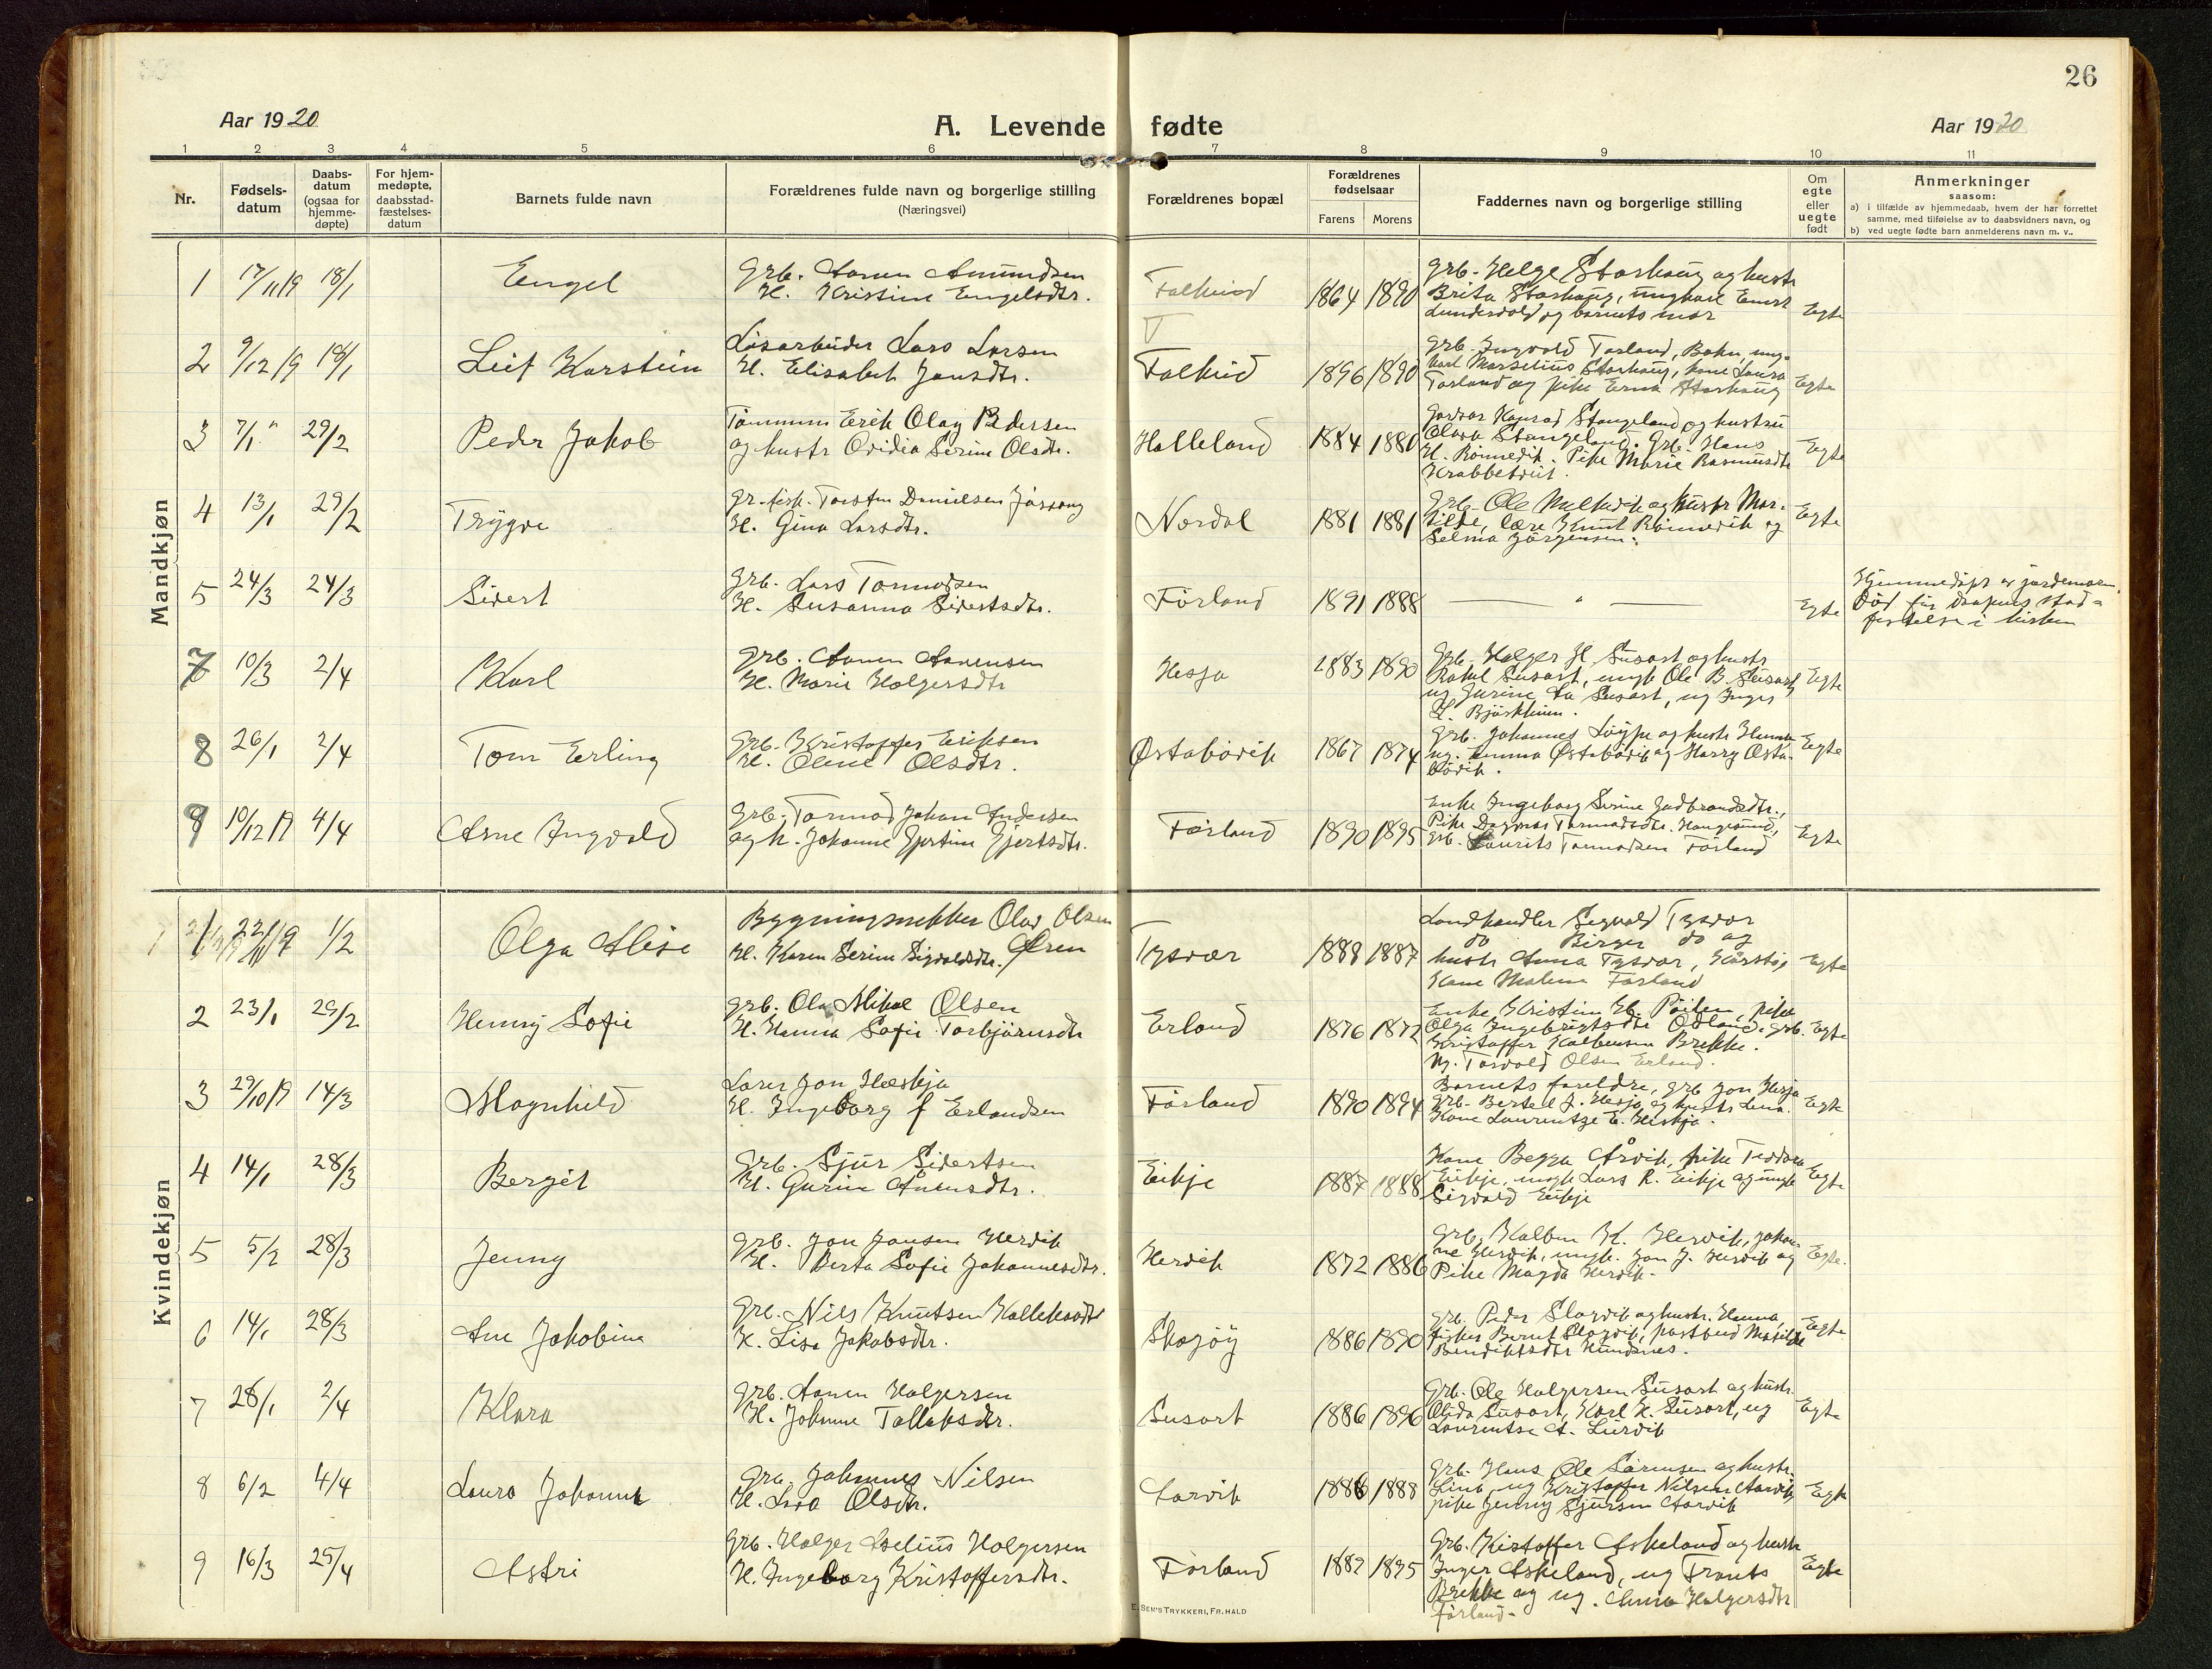 26
Aar 1920
A. Levende fødte
Aar 1920
1 2 3 4 5 6 7 8 9 10 11
Nr.
Fødsels-
datum
Daabs-
datum
(ogsaa for
hjemme-
døpte)
For hjem-
medøpte,
daabsstad-
fæstelses-
datum
Barnets fulde navn
Forældrenes fulde navn og borgerlige stilling
(Næringsvei)
Forældrenes bopæl
Forældrenes
fødselsaar
Farens Morens
Faddernes navn og borgerlige stilling
Om
egte
eller
uegte
født
Anmerkninger
saasom:
a) i tilfælde av hjemmedaab, hvem der har forrettet
samme, med tilføielse av to daabsvidners navn, og
b) ved uegte fødte barn anmelderens navn m. v..
Mandkjøn
1 17/11 19 18/1 Engel
Grb. Aanen Amundsen
H. Kristine Engelsdtr.
1864 1890
Grb. Helge Storhaug og hustr
Brita Storhaug, ungkarl
og barnets mor
Egte
2 9/12 19 18/1 Leif Karstein
Løsarbeider Lars Larsen
H. Elisabet Jansdtr.
1896 1890
Grb. Ingvald Førland, ung-
karl Marselius Storhaug, kone Laura
Førland og pike Erna Storhaug
Egte
3 7/1 29/2 Peder Jakob
Tømmerm Erik Olaj Pedersen
og hustr Ovidia Serine Olsdtr.
Halleland
1884 1880
Konrad Stangeland og hustru
Olava Stangeland. Grb. Hans
H. Rønnevik. Pike Marie Rasmusdtr
Egte
4 13/1 29/2 Trygve
Torsten Danielsen
H. Gina Larsdtr.
Nordal
1881 1881
Grb. Ole og hustr
lære Knut Rønnevik og
Selma Jørgensen.
Egte
5 24/3 24/3 Sivert
Grb. Lars Tormodsen
H. Susanna Sivertsdtr.
Førland
1891 1888
— " —
Egte
Hjemmedøpt av jordemoren.
Død før daapens stad-
festelse i kirken
7 10/3 2/4 Karl
Grb. Aanen Aanensen
H. Marie Holgersdtr
Hesja
1883 1890
Grb. Holger H. Susort og hustr
Rakel Susort, ungk Ole B. Susort,
ug Gurine Aa Susort, ug Inger
Egte
8 26/1 2/4 Tom Erling
Grb. Kristoffer Eriksen
H. Oline Olsdtr.
Østabøvik
1867 1874
Grb. Johannes og hustr
ug. Emma Østabøvik og Harry Østa-
bøvik.
Egte
9 10/12 19 4/4 Arne Ingvald
Grb. Tormod Johan Andersen
og h. Johanne Gjertine Gjertsdtr.
Førland
1890 1895
Enke Ingeborg Serine Gudbrandsdtr,
Pike Dagmar Tormodsdtr. Haugesund,
Grb. Laurits Tormodsen Førland
Egte
Kvindekjøn
1 1/2 Olga Alise
Bygningssnekker Olav Olsen
H. Karen Serine Sigvaldsdtr.
Tysvær
1888 1887
Landhandler Sigvald Tysvær
do Birger do og
hustr Anna Tysvær, Kårstø,
Kone Malene Førland
Egte
2 23/1 29/2 Henny Sofie
Grb. Ola Mikal Olsen
H. Hanna Sofie Torbjørnsdtr
Erland
1876 1872
Enke Kristine pike
Olga Ingebrigtsdtr Odland. grb.
Kristoffer Kolbensen Brekke.
ug. Torvald Olsen Erland.
Egte
3 29/10 19 14/3 Magnhild
Lærer Jon Heskja
H. Ingeborg f Erlandsen
Førland
1890 1894
Barnets foreldre, grb Jon Hesja
grb. Bertel J. Hesja og hustr Lina.
Kone Laurentze E. Heskja.
Egte
4 14/1 28/3 Bergit
Grb. Sjur Sivertsen
H. Gurine Aanensdtr.
Eikje
1887 1888
Kone Begga Årvik, pike Teodora
Eikje, ungk Lars R. Eikje og ungk
Sigvald Eikje
Egte
5 5/2 28/3 Jenny
Grb. Jon Jonsen Hervik
H. Berta Sofie Johannesdtr.
Hervik
1872 1886
Grb. Kolben K. Hervik, Johan-
ne Hervik, ungk. Jon J. Hervik og
Pike Magda Hervik.
Egte.
6 14/1 28/3 Ane Jakobine
Grb. Nils Knutsen
H. Lisa Jakobsdtr.
1886 1890
grb. Peder Slogvik og hustr. Hanna,
fisker Bernt Slogvik, postbud
Bendiktsdtr
Egte
7 28/1 2/4 Klara
Grb. Aanen Holgersen
H. Johanne Tollaksdtr.
Susort
1886 1896
Grb. Ole Holgersen Susort og hustr.
Olida Susort, Karl H. Susort, ug
Laurentse A.
Egte
8 6/2 4/4 Laura Johanne
Grb. Johannes Nilsen
H. Olsdtr.
Aarvik
1886 1888
Grb. Hans Ole Sørensen og hustr.
Lina, ug Kristoffer Nilsen Aarvik
pike Jenny Sjursen Aarvik
Egte
9 16/3 25/4 Astri
Grb. Holger Aselius Holgersen
H. Ingeborg Kristoffersdtr.
Førland
1882 1895
Grb. Kristoffer Askeland og hustr
Inger Askeland, ug
Brekke og ug. Anna Holgersdtr
Førland.
Egte
E. SEM'S TRYKKERI, FR.HALD